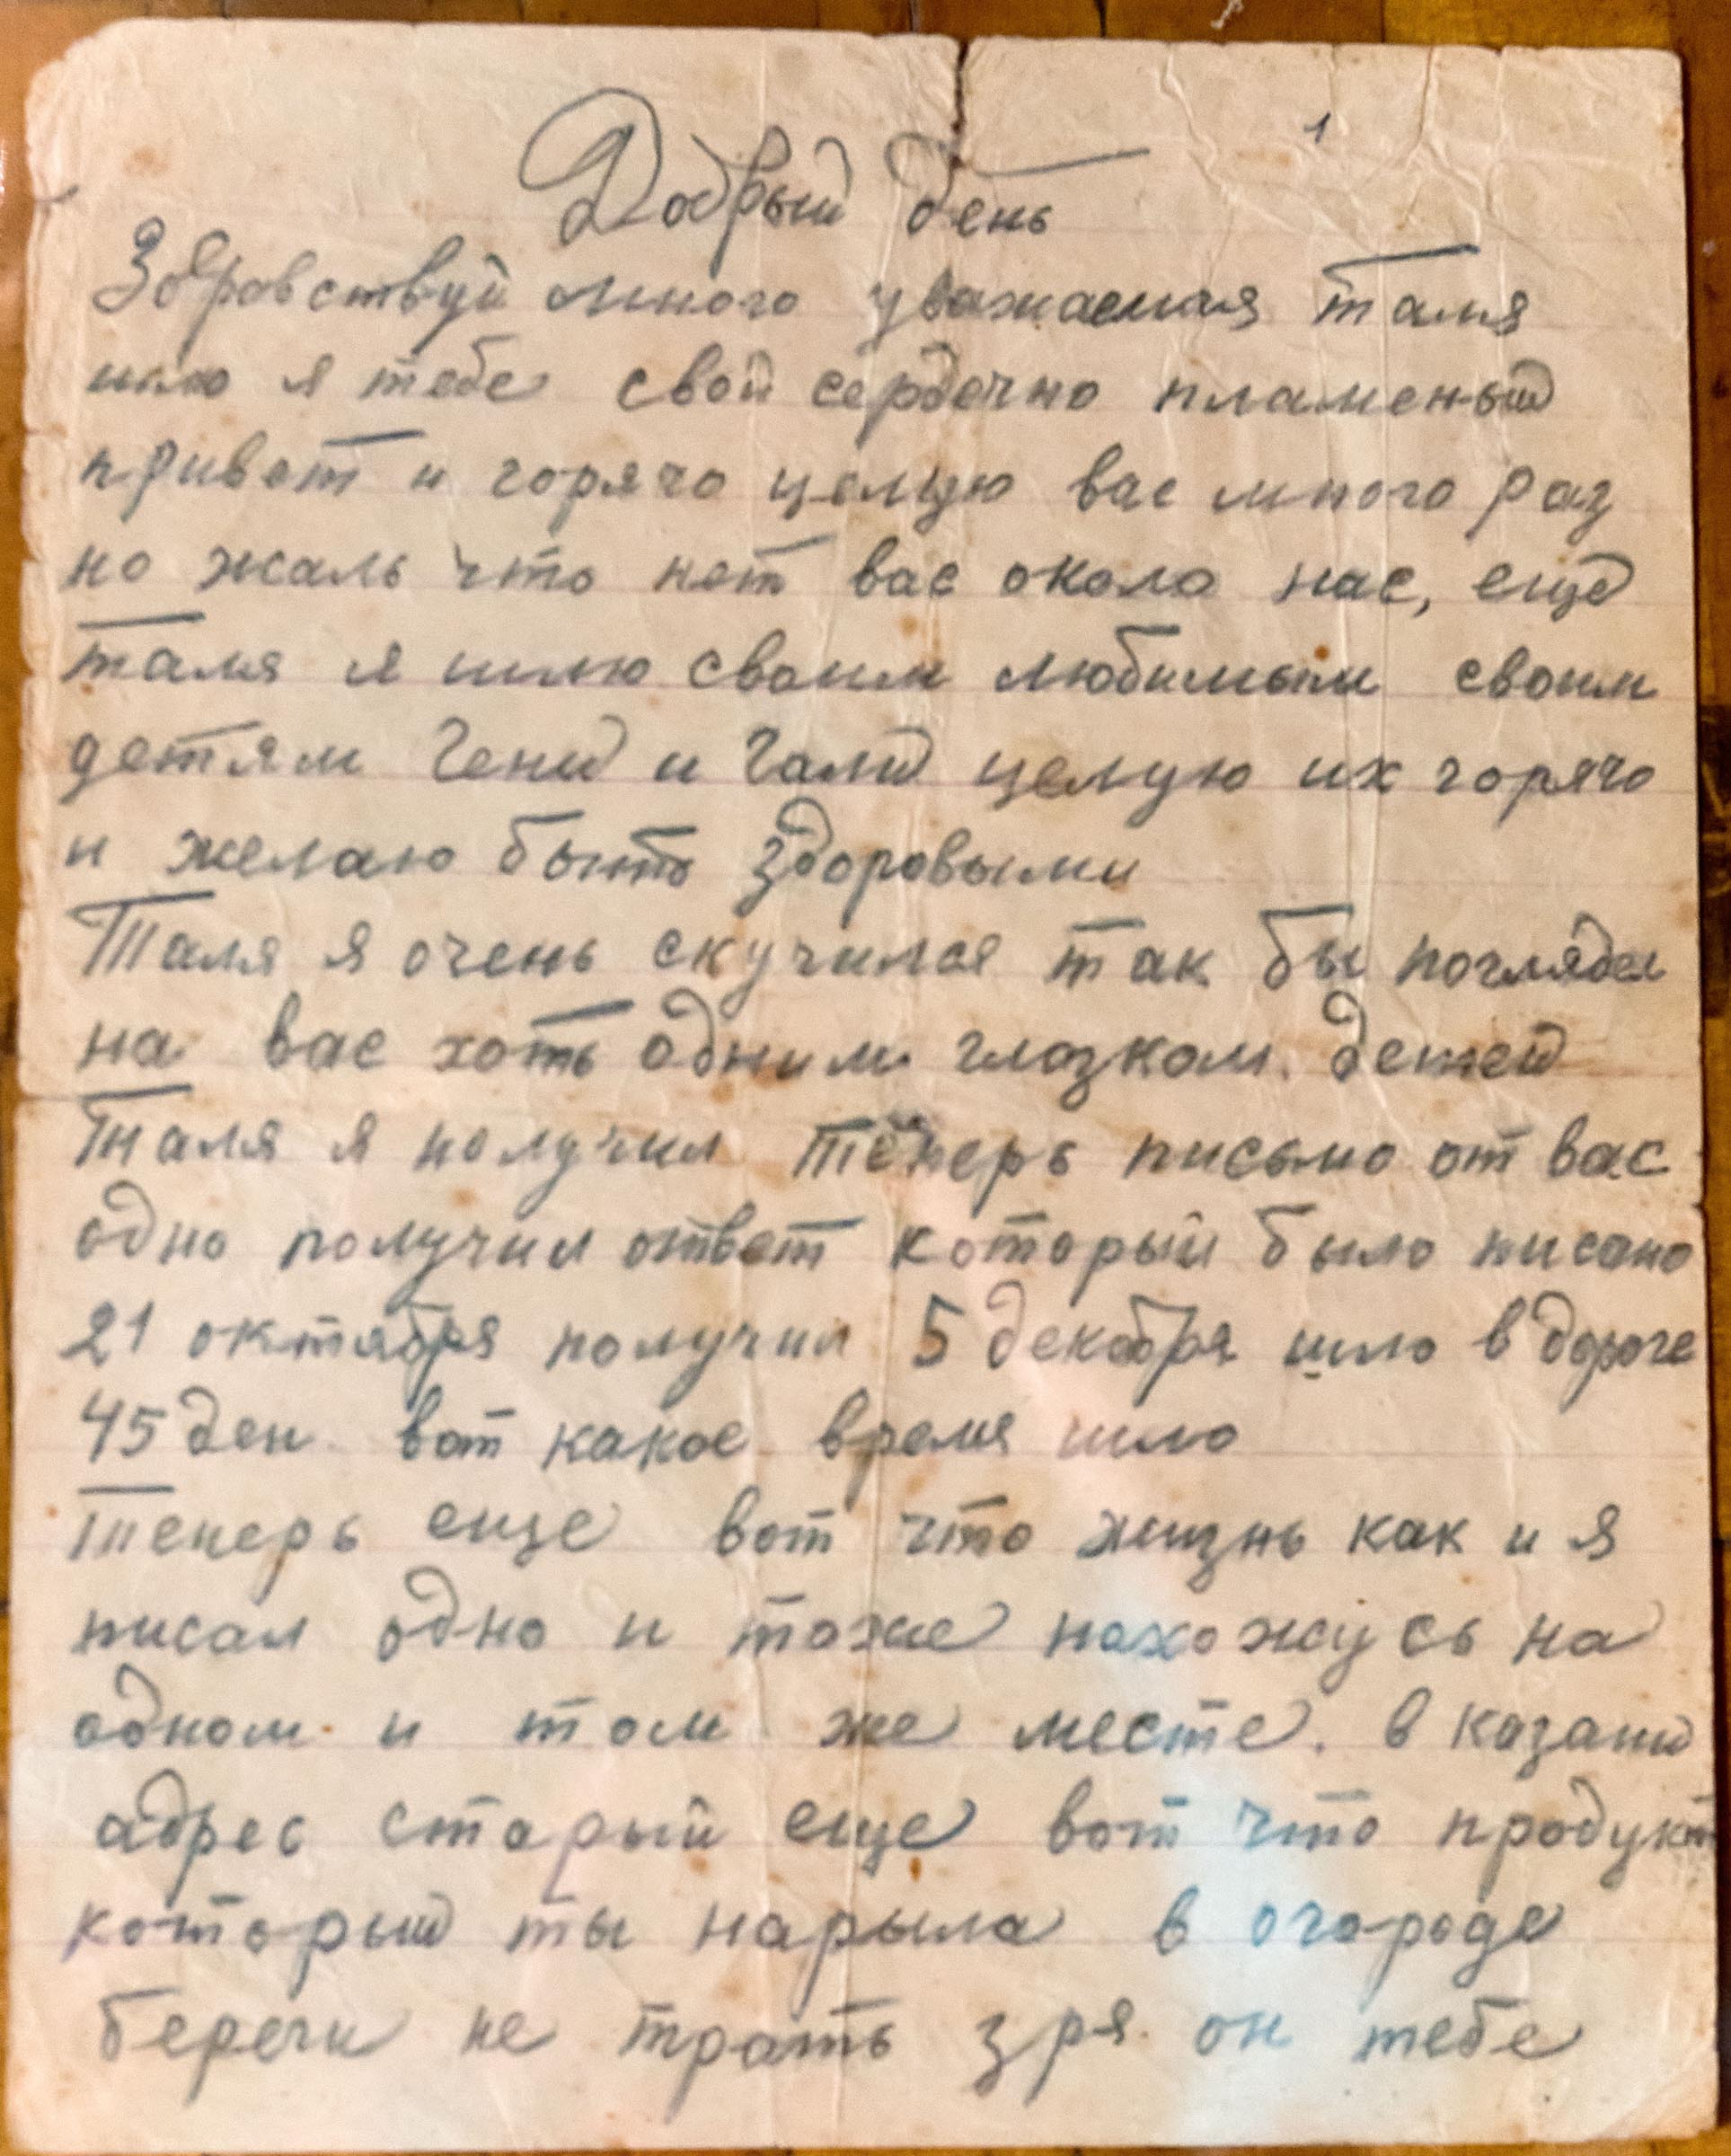 1
Добрый день
Здравствуй много уважаемая таля
шлю я тебе свой сердечно пламеный
привет и горячо целую вас много раз
но жаль что нет вас около нас, еще
таля я шлю своим любимым своим
детям Гени и Гали целую их горячо
и желаю быть здоровыми
Таля я очень скучился так бы поглядел
на вас хоть одним глазком. детей
Таля я получил теперь письмо от вас
одно получил ответ который было писано
21 октября получил 5 декабря шло в дороге
45 ден вот какое время шло
Теперь еще вот что жизнь как и я
писал одно и тоже нахожусь на
одном и том же месте. в казани
адрес старый еще вот что продукт
который ты нарыла в огороде
береги не трать зря он тебе